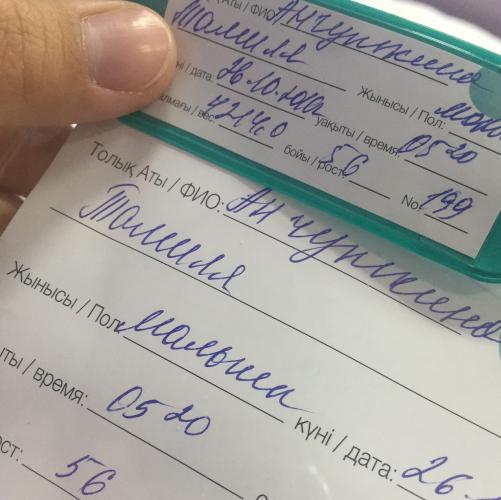 Аты / ФИО Анчупкина
Толилля
күні / дата: 26.10. Жынысы / Пол: маль
салмағы / вес: 4214,0 уақыты / время: 05 20
бойы / рост: 56 No: 199
Толық Аты / ФИО: Анчупкина
Толилля
Жынысы / Пол: мальчик
уақыты / время: 05 20 күні / дата: 26.
рост: 56